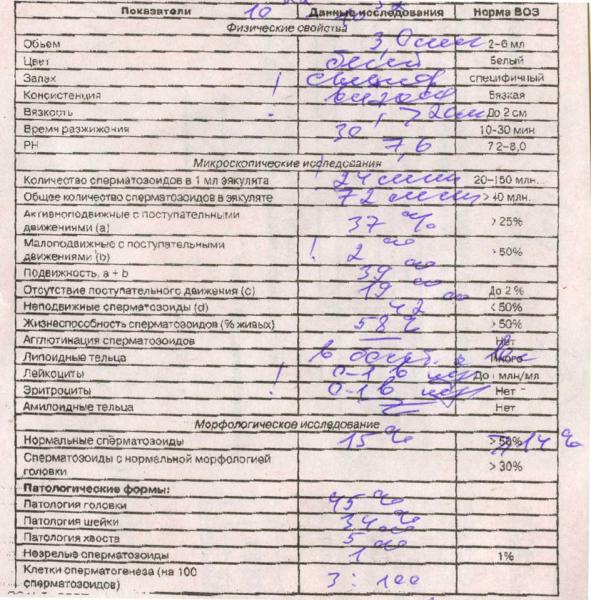 Показатели 10 Данные исследования Норма ВОЗ
Физические свойства
Объем 3,0 мл 2–6 мл
Цвет белый Белый
Запах специф специфичный
Консистенция вязкая Вязкая
Вязкость > 2 см До 2 см
Время разжижения 30 10-30 мин
РН 7,6 7 2–8,0
Микроскопические исследования
Количество сперматозоидов в 1 мл эякулята 24 млн 20–150 млн.
Общее количество сперматозоидов в эякуляте 72 млн > 40 млн.
Активноподвижные с поступательными
движениями (a) 37 % > 25%
Малоподвижные с поступательными
движениями (b) ! 2 % > 50%
Подвижность, a + b 39 %
Отсутствие поступательного движения (c) 19 % До 2 %
Неподвижные сперматозоиды (d) 42 < 50%
Жизнеспособность сперматозоидов (% живых) 58 % > 50%
Агглютинация сперматозоидов — Нет
Липоидные тельца Много
Лейкоциты 0-1 в До млн/мл
Эритроциты ! 0-1 в Нет
Амилоидные тельца Нет
Морфологическое исследование
Нормальные сперматозоиды 15 % > 50% 14 %
Сперматозоиды с нормальной морфологией
головки > 30%
Патологические формы:
Патология головки 45 %
Патология шейки 34 %
Патология хвоста 5 %
Незрелые сперматозоиды 1 1%
Клетки сперматогенеза (на 100
сперматозоидов) 3 : 100